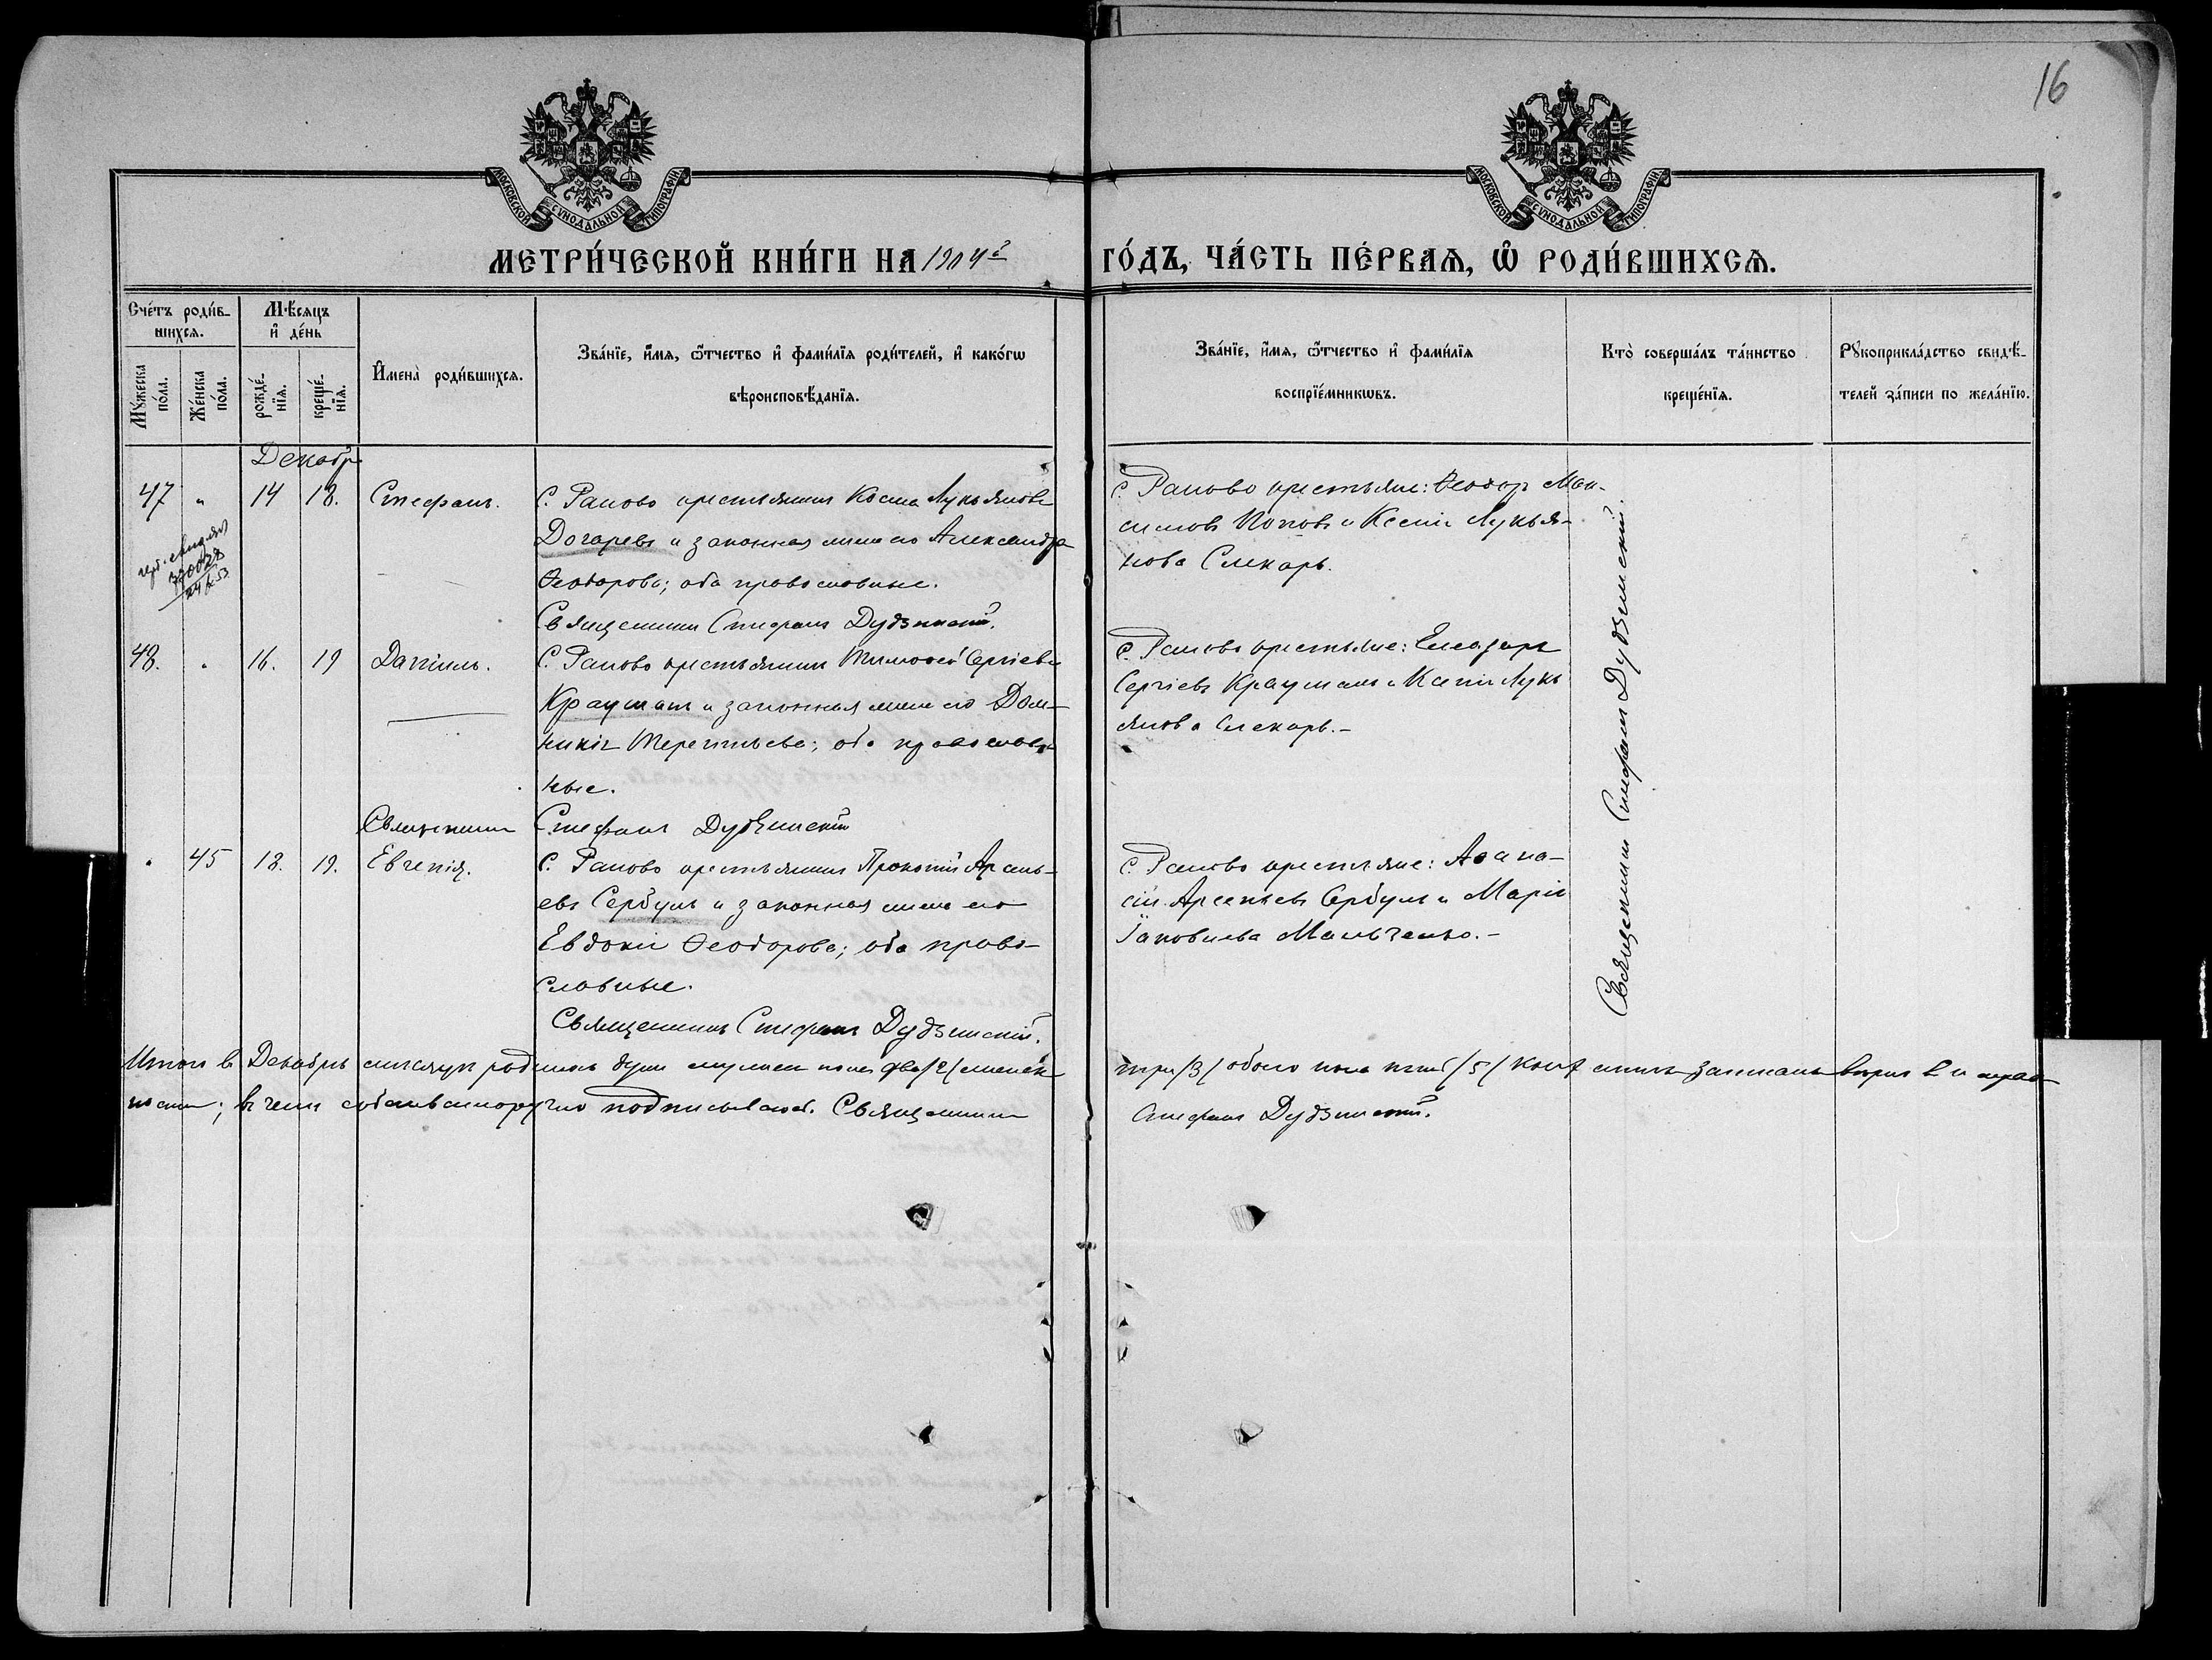 16
МОСКОВСКОЙ СУНОДАЛЬНОЙ ТИПОГРАФIИ
МОСКОВСКОЙ СУНОДАЛЬНОЙ ТИПОГРАФIИ
МЕТРИ́ЧЕСКОЙ КНИ́ГИ НА 1904й ГО́ДЪ, ЧА́СТЬ ПЕ́РВАѦ, Ѿ РОДИ́ВШИХСѦ.
Сче́тъ роди́в-
шихсѧ.
Мѣ́сѧцъ
и҆ де́нь
Мꙋ́жеска
по́ла.
Же́нска
по́ла.
рожде́-
нїѧ.
креще́-
нїѧ.
И҆мена̀ роди́вшихсѧ.
Зва́нїе, и҆́мѧ, ѻ҆́тчество и҆ фами́лїѧ роди́телей, и҆ како́гѡ
вѣроисповѣ́данїѧ.
Зва́нїе, и҆́мѧ, ѻ҆́тчество и҆ фами́лїѧ
воспрїе́мникѡвъ.
Кто̀ соверша́лъ та́инство
креще́нїѧ.
Рꙋкоприкла́дство свидѣ́-
телей за́писи по жела́нїю.
Декабр
47 " 14 18. Стефанъ.
С. Раково крестьянинъ Косма Лукьяновъ
Догаревъ и законная жена его Александра
Ѳеодорова; оба православные.
Священникъ Стефанъ Дудзинскiй.
С. Раково крестьяне: Ѳеодоръ Мак-
симовъ Поповъ и Ксенiя Лукья-
нова Слекарь.
48. " 16. 19 Данiилъ.
С. Раково крестьянинъ Тимоѳей Сергiевъ
Крауманъ и законная жена его Дом-
никiя Терентьева; оба православ-
ные.
Священникъ Стефанъ Дудзинскiй
С. Раково крестьяне: Елеазаръ
Сергiевъ Крауманъ и Ксенiя Лукь
янова Слекарь.-
" 45 18. 19. Евгенiя.
С. Раково крестьянинъ Прокопiй Арсень-
евъ Сербулъ и законная жена его
Евдокiя Ѳеодорова; оба право-
славные.
Священникъ Стефанъ Дудзинскiй.
С. Раково крестьяне: Аѳана-
сiй Арсеньевъ Сербулъ и Марiя
Iаковлева Мальченко.-
Священникъ Стефанъ Дудзинскiй.
Итого въ Декабрѣ мѣсяцѣ родилось душъ мужеск пола два /2/ женск три /3/ обоего пола пять /5/ записаны вѣрно
въ чемъ собственноручно подписываюсь. Священникъ Стефанъ Дудзинскiй.